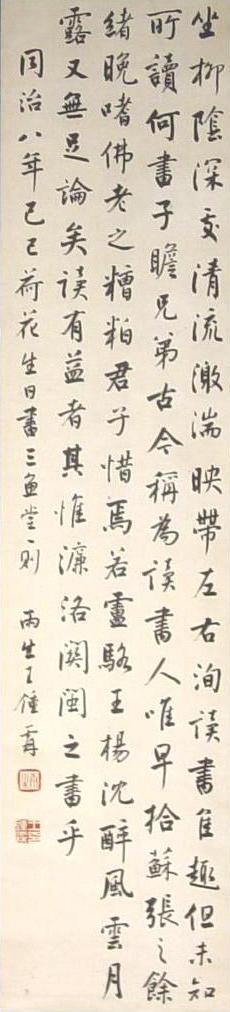 坐柳陰深處清流激湍映帶左右洵讀書佳趣但未知
所讀何書子瞻兄弟古今稱為讀書人唯早拾蘇張之餘
緒晚嗜佛老之糟粕君子惜焉若盧駱王楊沈醉風雲月
露又無足論矣讀有益者其惟濂洛關閩之書乎
同治八年己巳荷花生日書三魚堂一則 雨生丁